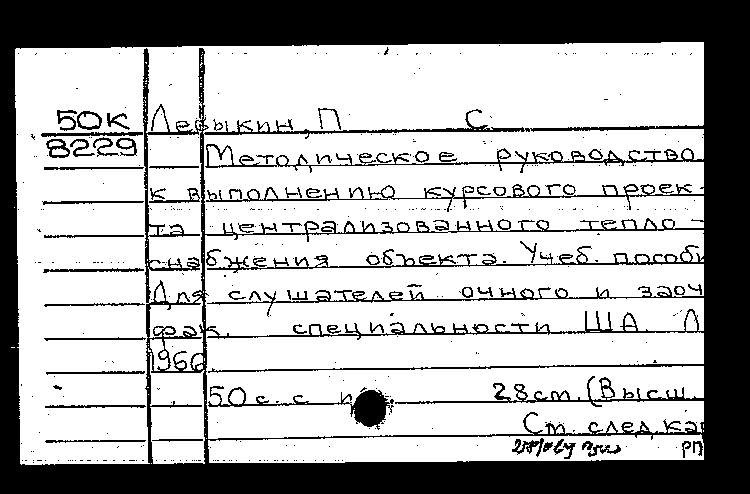 50К Левыкин, П С.
8229 Методическое руководство
к выполнению курсового проек-
та централизованного тепло-
снабжения объекта. Учеб. пособи
Для слушателей очного и заоч
фак. специальности ША. Л
1966.
50 с. с 28 cm. (Высш.
Ст. след. кар
РП